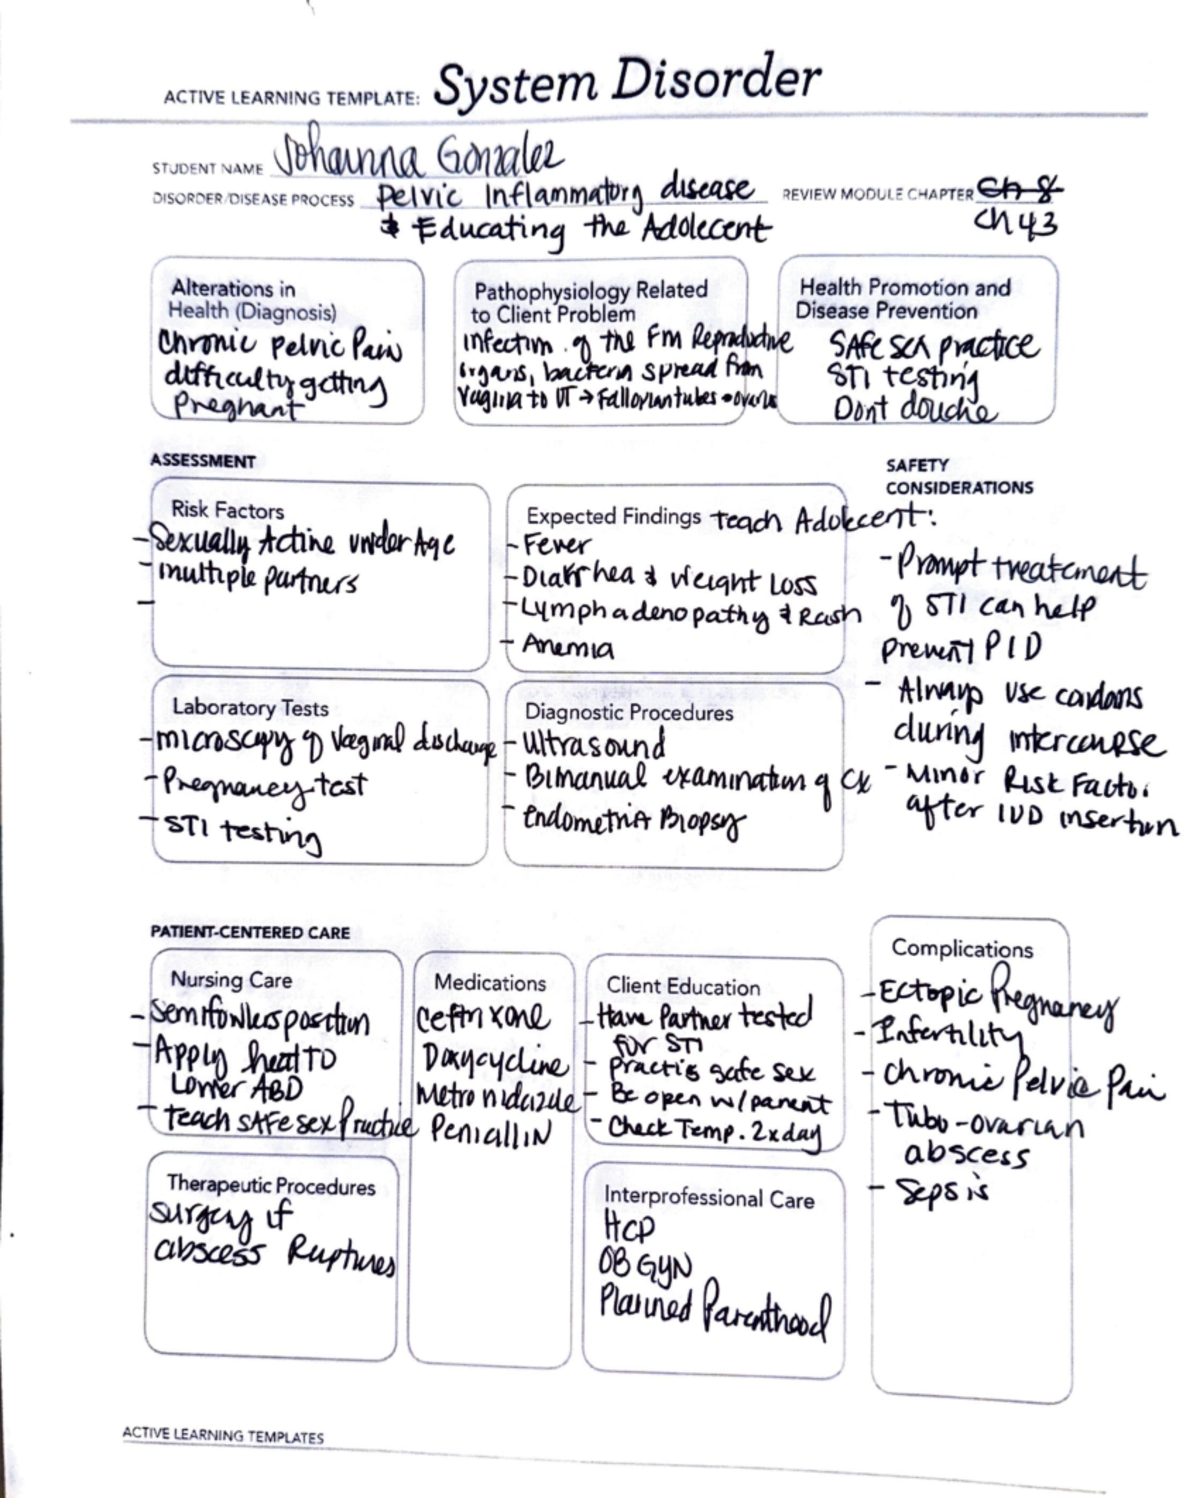 ACTIVE LEARNING TEMPLATE: System Disorder
STUDENT NAME Johanna Gonzalez
DISORDER/DISEASE PROCESS Pelvic Inflammatory disease
& Educating the Adolecent
REVIEW MODULE CHAPTER Ch 8
Ch 43
Alterations in
Health (Diagnosis)
Chronic pelvic Pain
difficulty getting
Pregnant
Pathophysiology Related
to Client Problem
infection of the Fm Reproductive
organs, bacteria spread from
Vagina to UT → Fallopian tubes → ovaries
Health Promotion and
Disease Prevention
SAFe sex practice
STI testing
Dont douche
ASSESSMENT
Risk Factors
- Sexually Active under Age
- multiple partners
-
Expected Findings
- Fever
- Diarrhea & Weight Loss
- Lymphadenopathy & Rash
- Anemia
SAFETY
CONSIDERATIONS
Teach Adolecent:
- Prompt treatement
of STI can help
prevent PID
- Always use condoms
during intercourse
- Minor Risk Factor
after IUD insertion
Laboratory Tests
- microscopy of Vaginal discharge
- Pregnancy test
- STI testing
Diagnostic Procedures
- Ultrasound
- Bimanual examination of Cx
- Endometria Biopsy
PATIENT-CENTERED CARE
Nursing Care
- Semifowlers position
- Apply heat to
Lower ABD
- teach SAFe sex Practice
Medications
Ceftrixone
Doxycycline
Metronidazole
Penicillin
Client Education
- Have Partner tested
for STI
- Practis safe sex
- Be open w/parent
- Check Temp. 2x day
Complications
- Ectopic Pregnancy
- Infertility
- Chronic Pelvic Pain
- Tubo-ovarian
abscess
- Sepsis
Therapeutic Procedures
surgery if
abscess Ruptures
Interprofessional Care
HCP
OB GYN
Planned Parenthood
ACTIVE LEARNING TEMPLATES